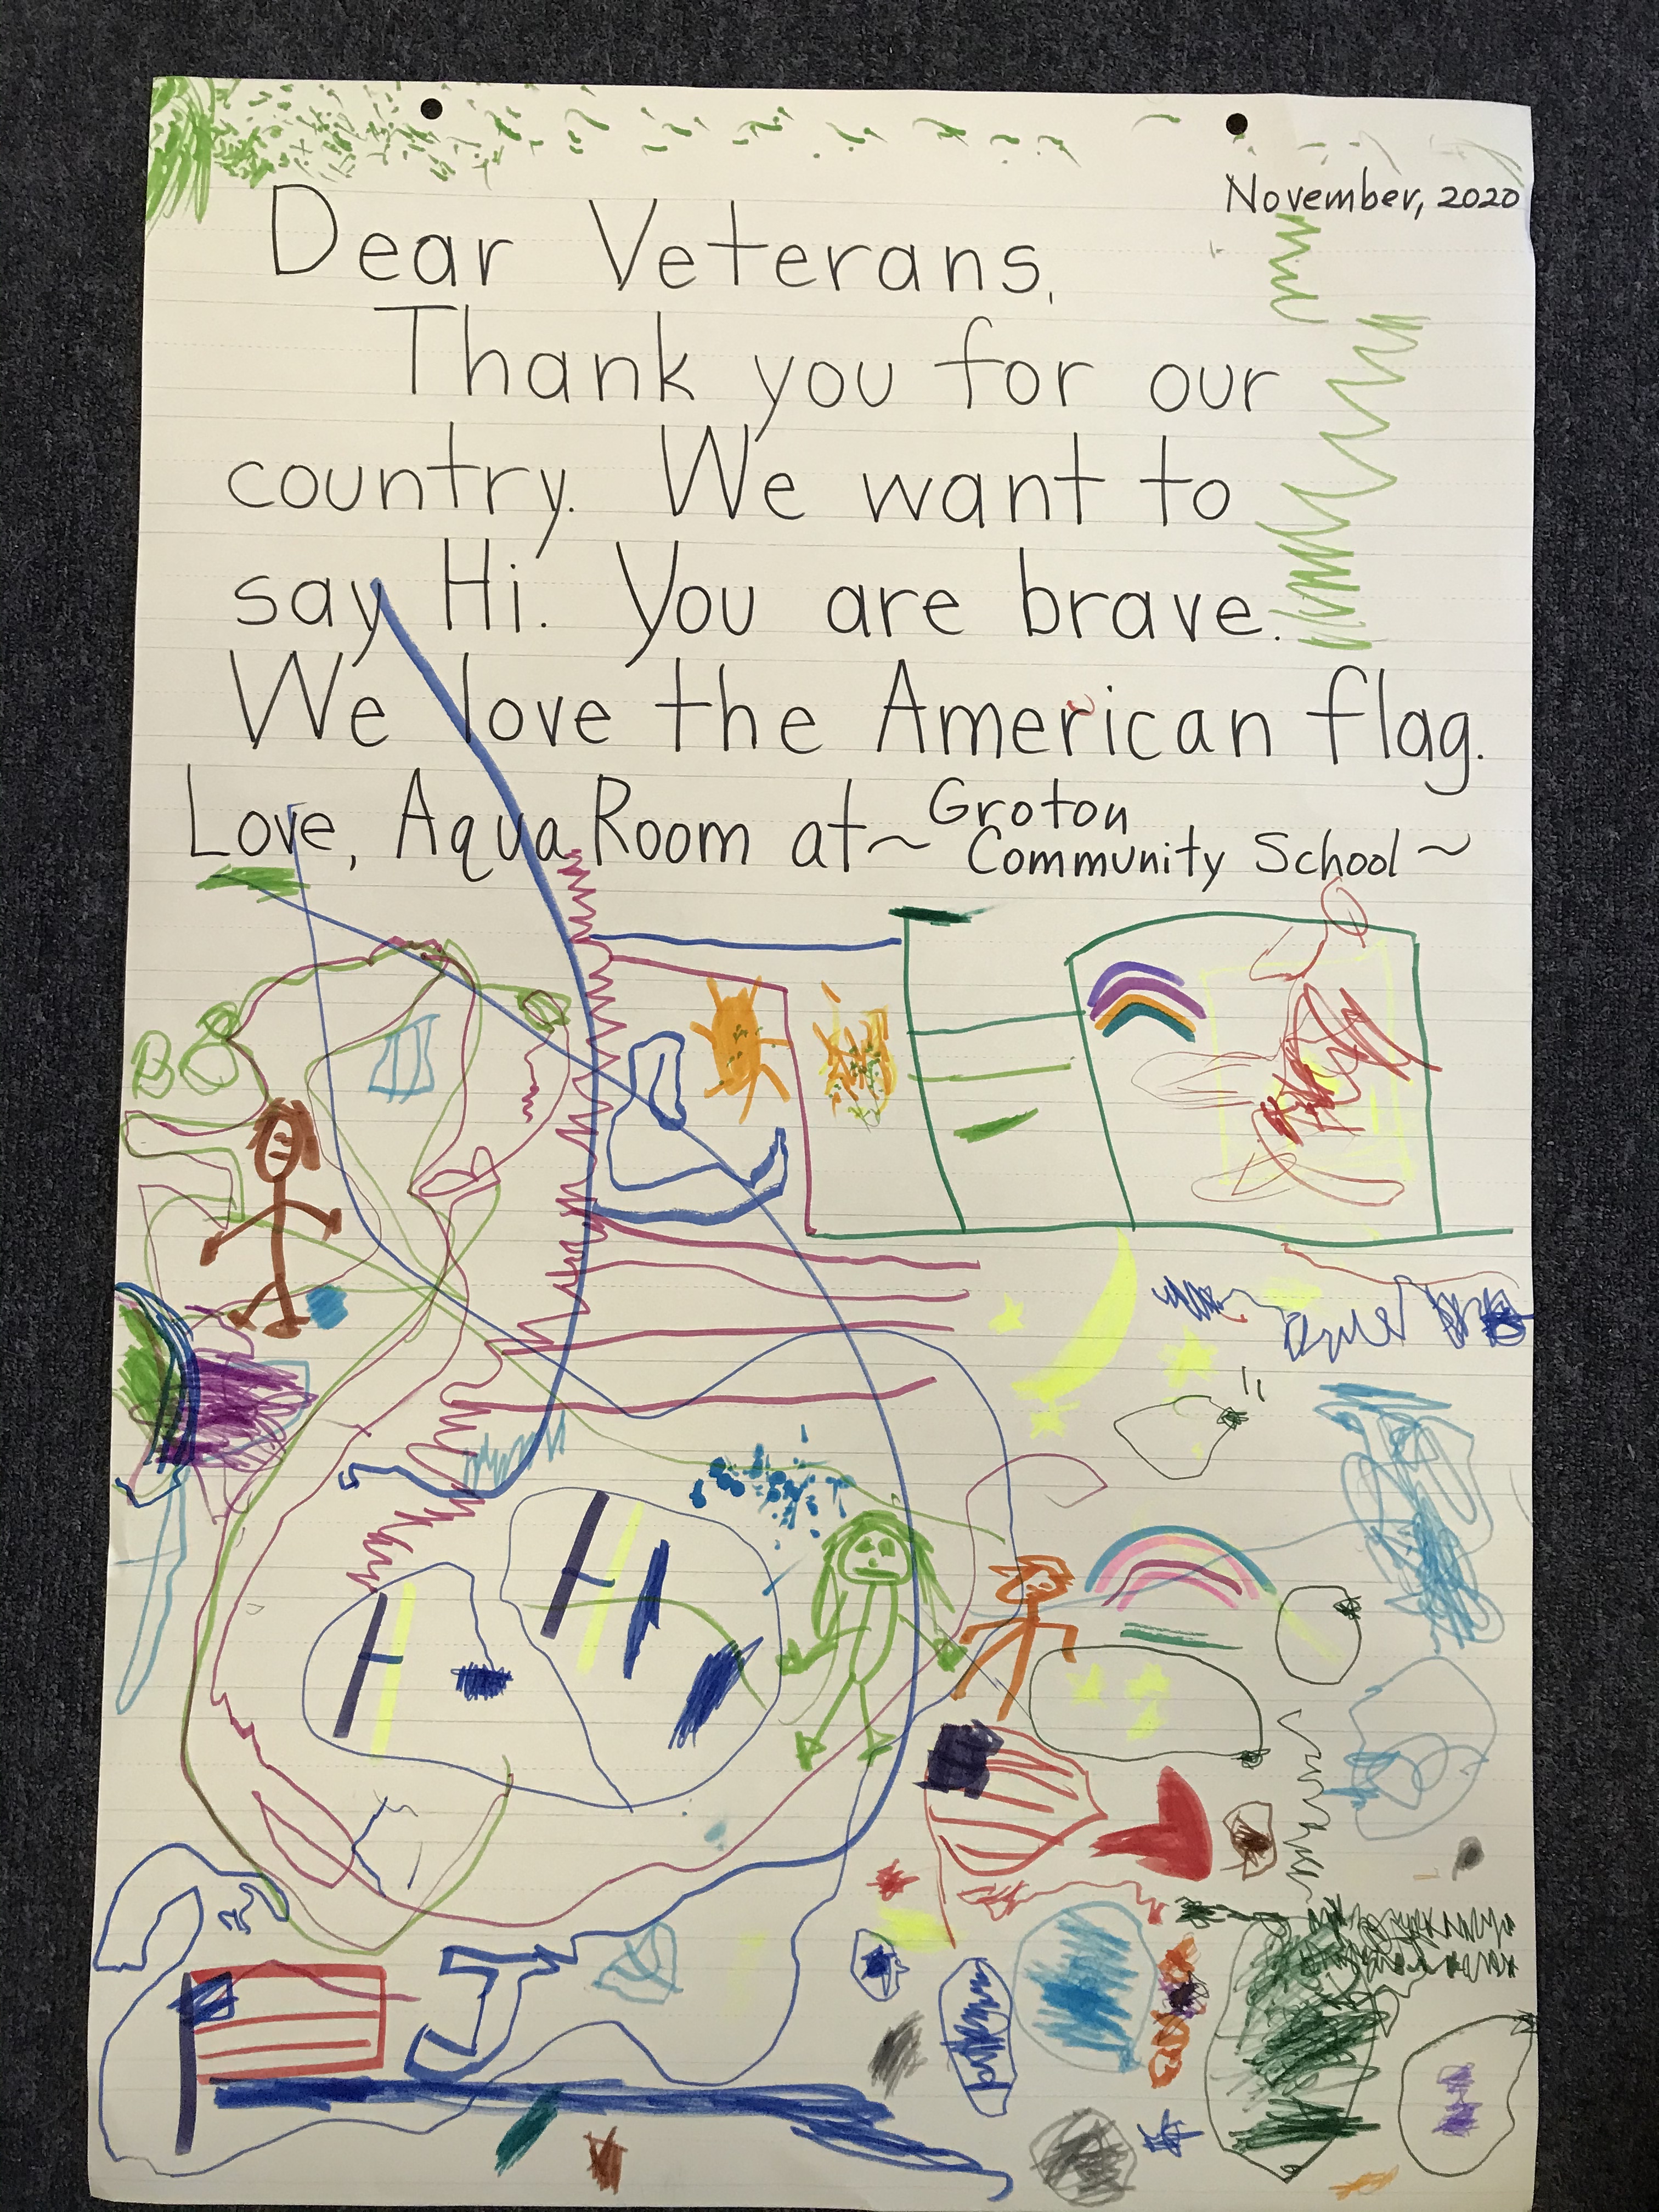 November, 2020
Dear Veterans,
Thank you for our
country. We want to
say Hi. You are brave.
We love the American flag.
Love, Aqua Room at ~ Groton
Community School ~
Bo
J